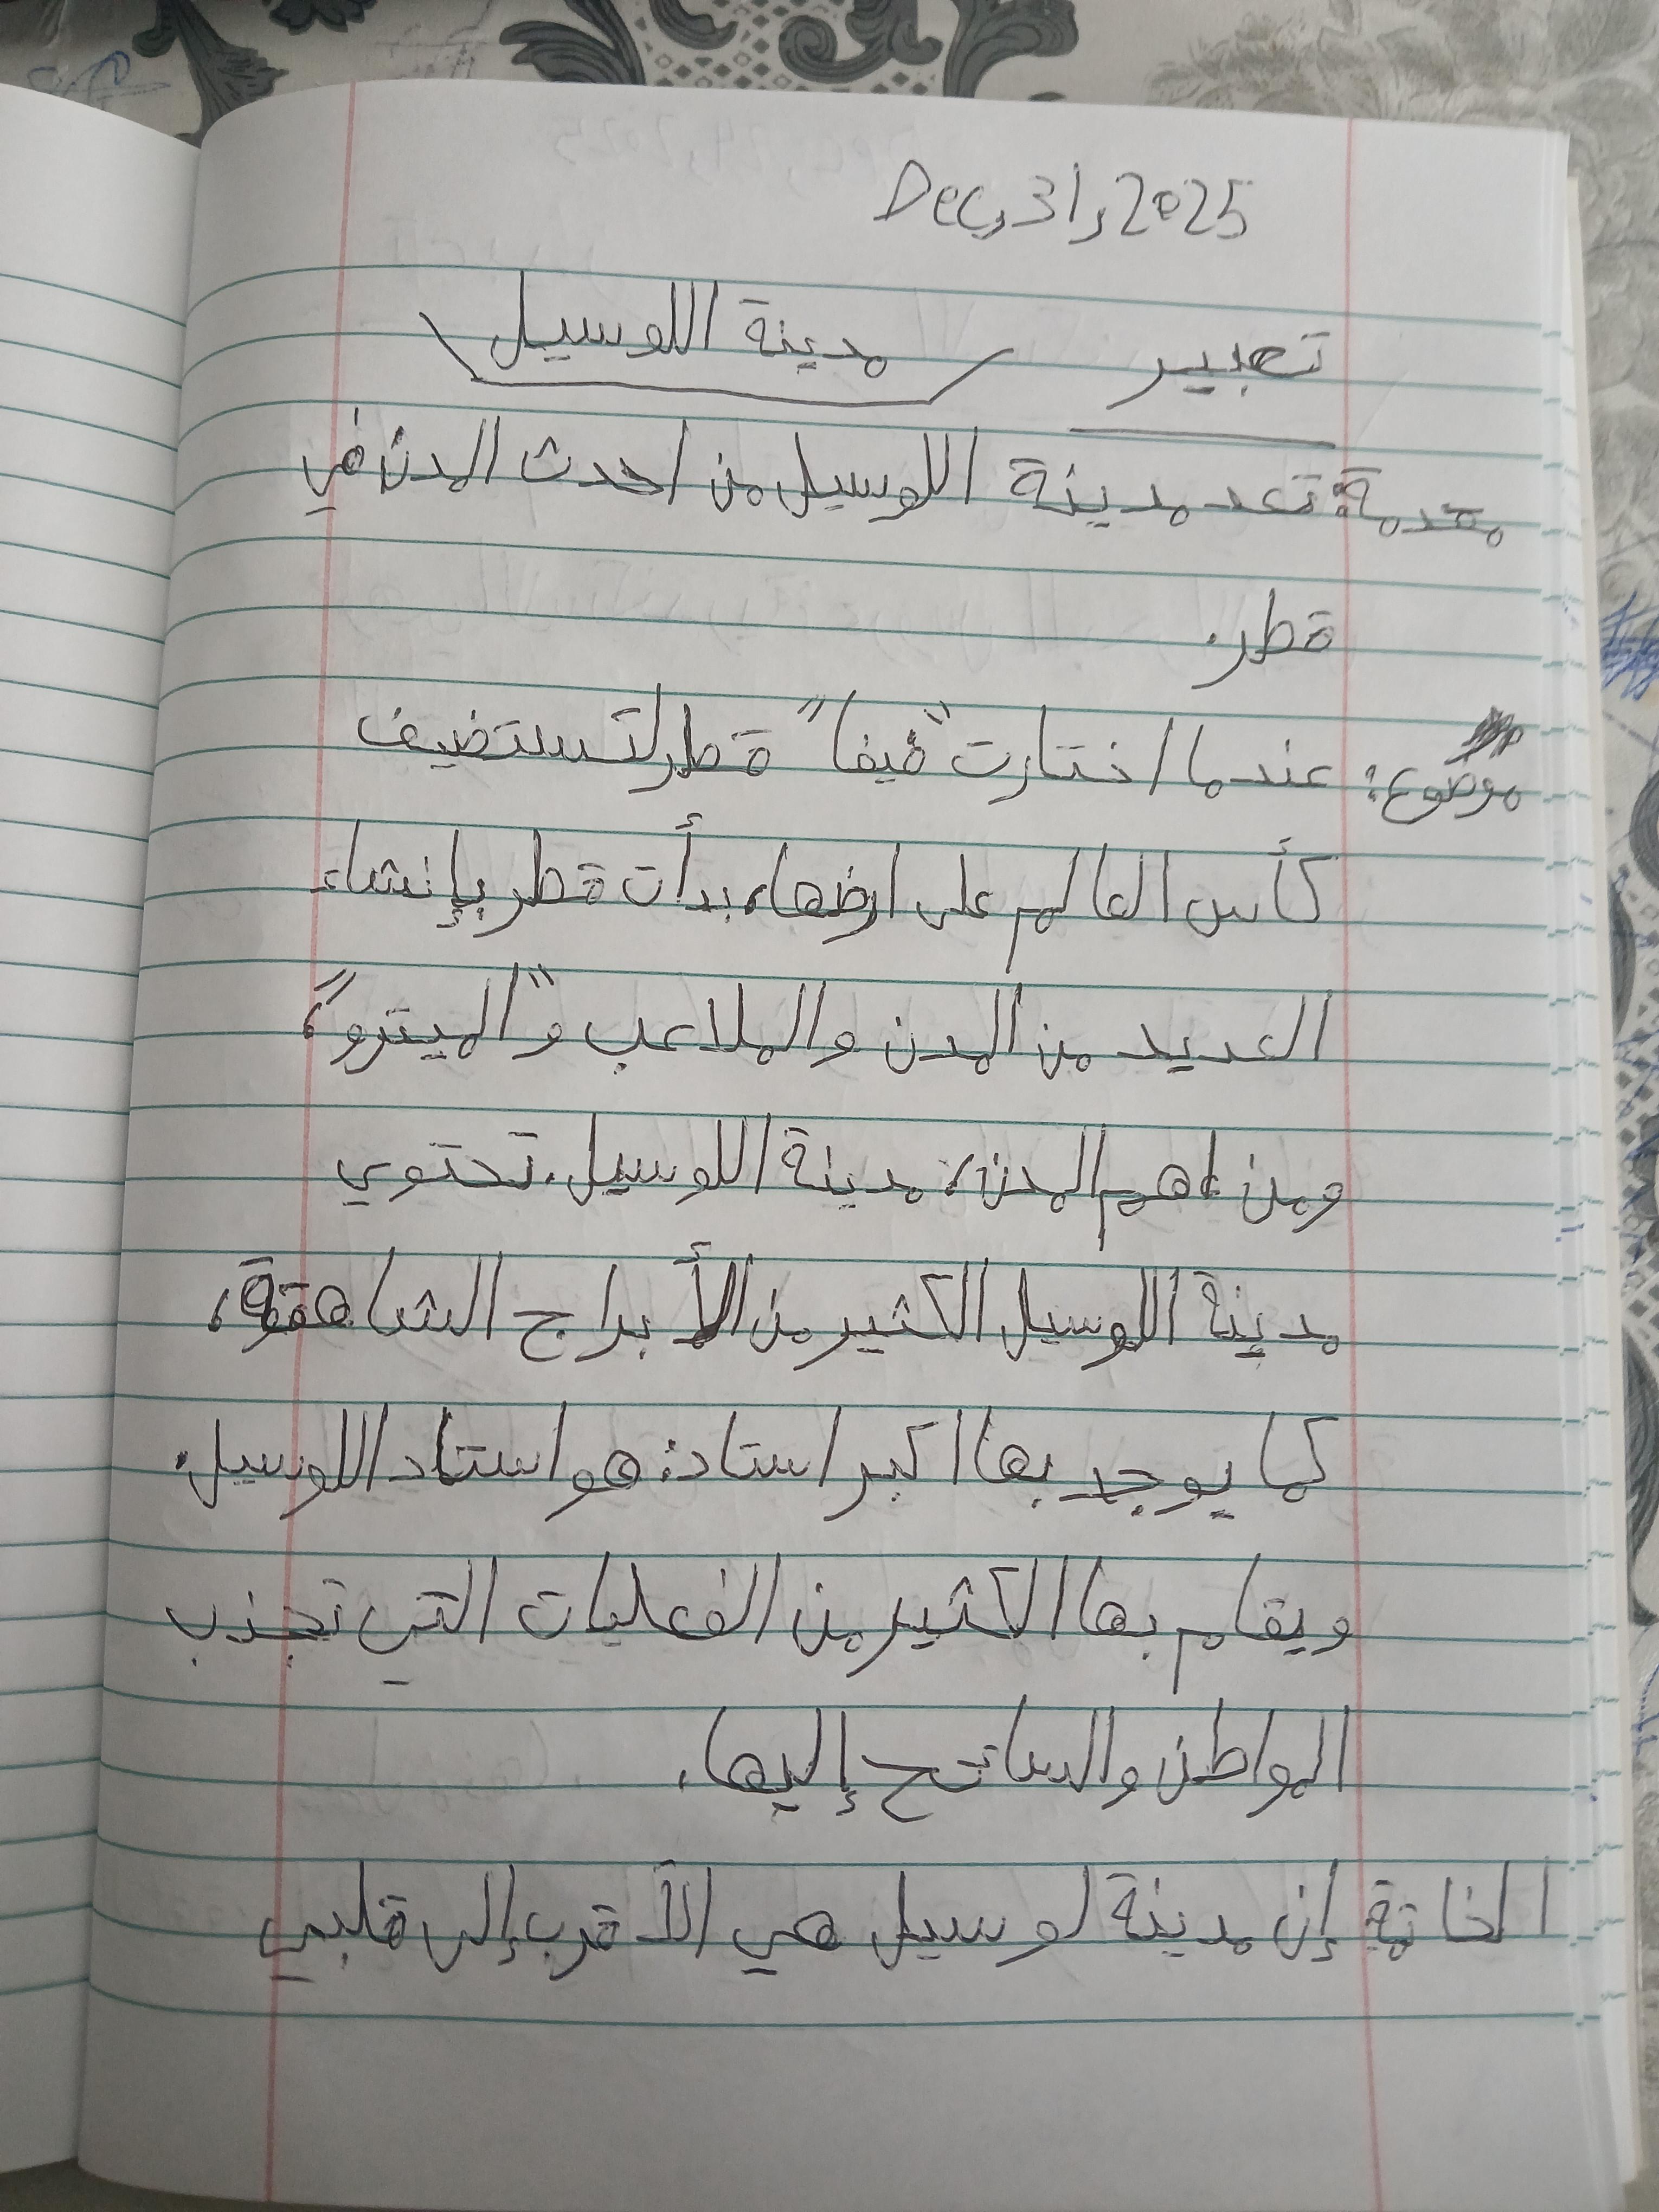 Dec,31,2025
تعبير مدينة اللوسيل
مقدمة: تعد مدينة اللوسيل من احدث المدن في
قطر.
موضوع: عندما اختارت "فيفا" قطر لتستضيف
كأس العالم على ارضها، بدأت قطر بإنشاء
العديد من المدن والملاعب و"الميترو"،
ومن اهم المدن، مدينة اللوسيل. تحتوي
مدينة اللوسيل الكثير من الأبراج الشاهقة،
كما يوجد بها اكبر استاد: هو استاد اللوسيل.
ويقام بها الكثير من الفعليات التي تجذب
المواطن والسائح إليها.
الخاتمة إن مدينة لوسيل هي الأقرب إلى قلبي